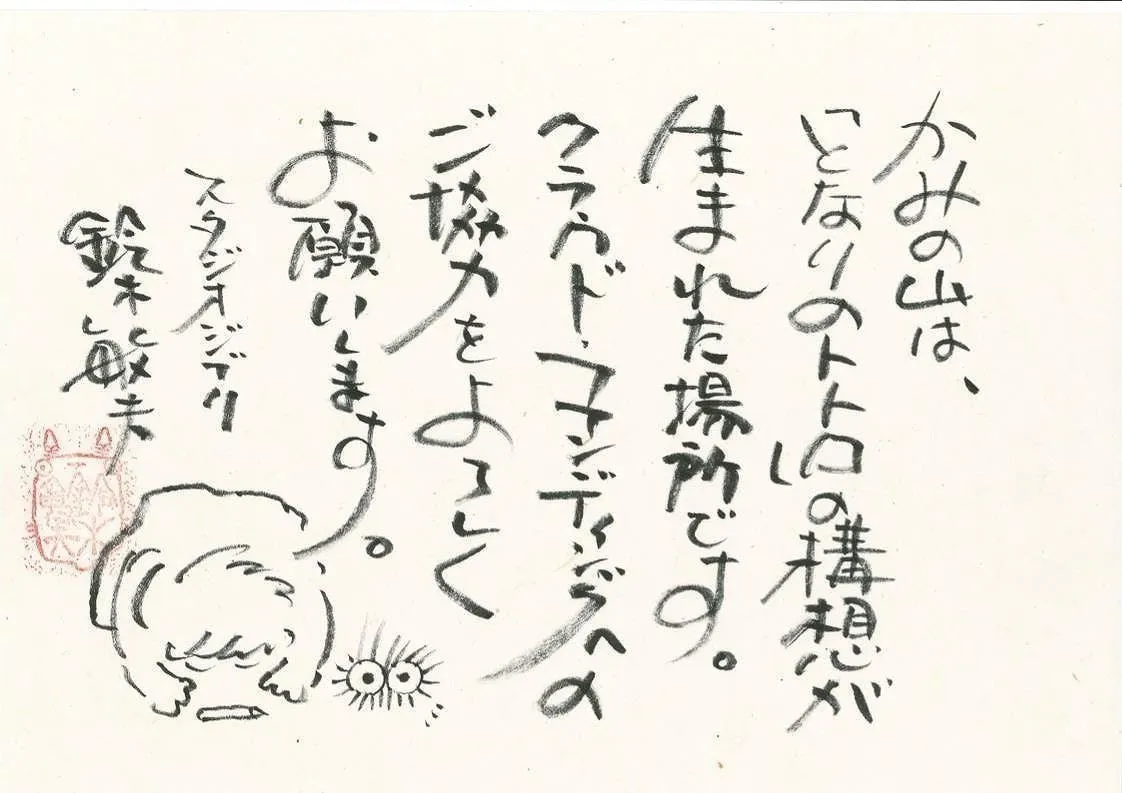 かみの山は、
『となりのトトロ』の構想が
生まれた場所です。
クラウド・ファンディングへの
ご協力をよろしく
お願いします。
スタジオジブリ
鈴木敏夫